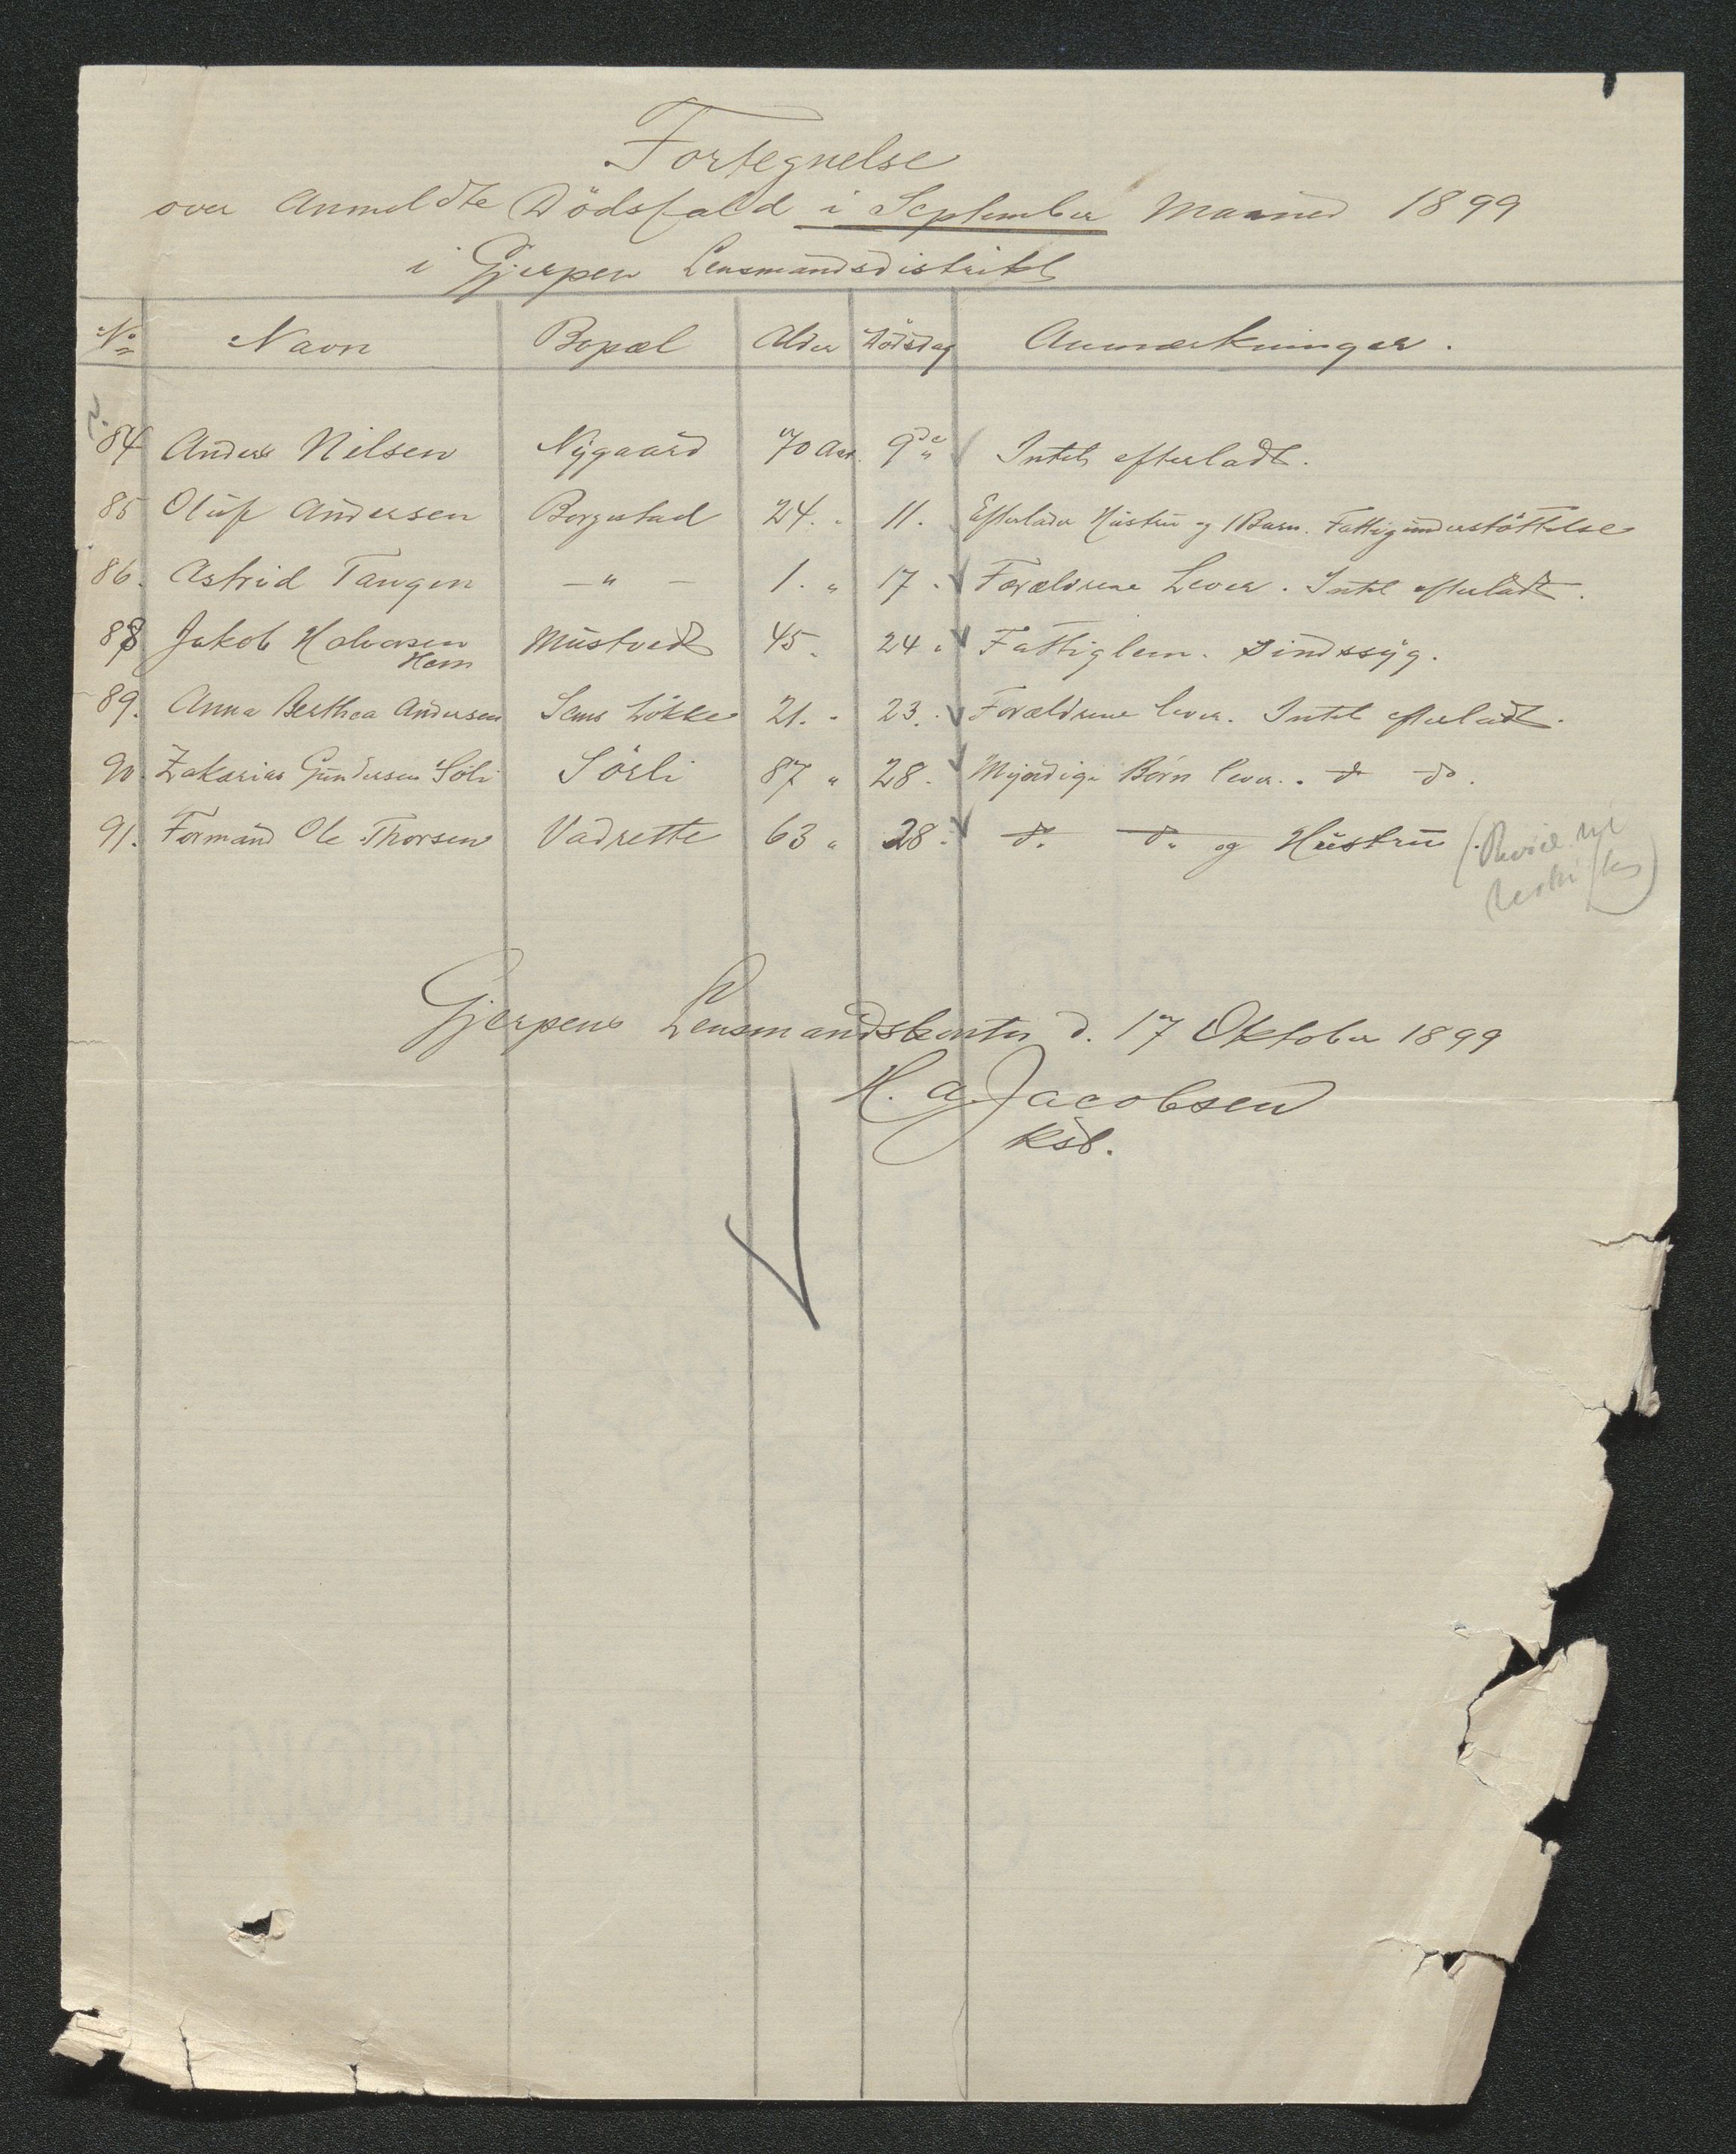 Fortegnelse
over Anmeldte Dödsfald i September Maaned 1899
i Gjerpen Lensmandsdistrikt
No Navn Bopæl Alder Dödsdag Anmærkninger.
84 Anders Nilsen Nygaard 70 Aar. 9de " Intet efterladt.
85 Oluf Andersen Borgestad 24. " 11. Efterlader Hustru og 1 Barn. Fattigunderstöttelse
86. Astrid Tangen — " — 1. " 17. Forældrene Lever. Intet efterladt.
88 Jakob Halvorsen Hem Mustvedt 45. 24. Fattiglem. Sindssyg.
89. Anna Berthea Andersen Sems Lökke 21. " 23. Forældrene lever. Intet efterladt.
90. Zakarias Gundersen Söli Sörli 87 " 28. Myndige Börn lever. do do.
91. Formand Ole Thorsen Vadrette 63 " 28. do. do. og Hustru.
Gjerpens Lensmandskontor d. 17 Oktober 1899
H. A. Jacobsen
Ksb.